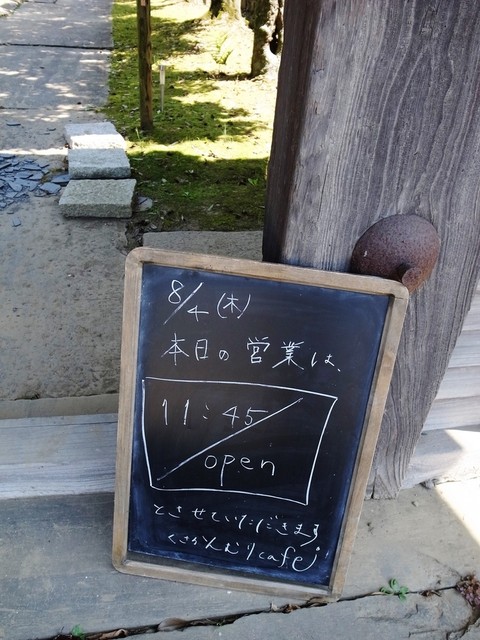 8/4(木)
本日の営業は、
11:45
open
とさせていただきます
くさかんむりcafe